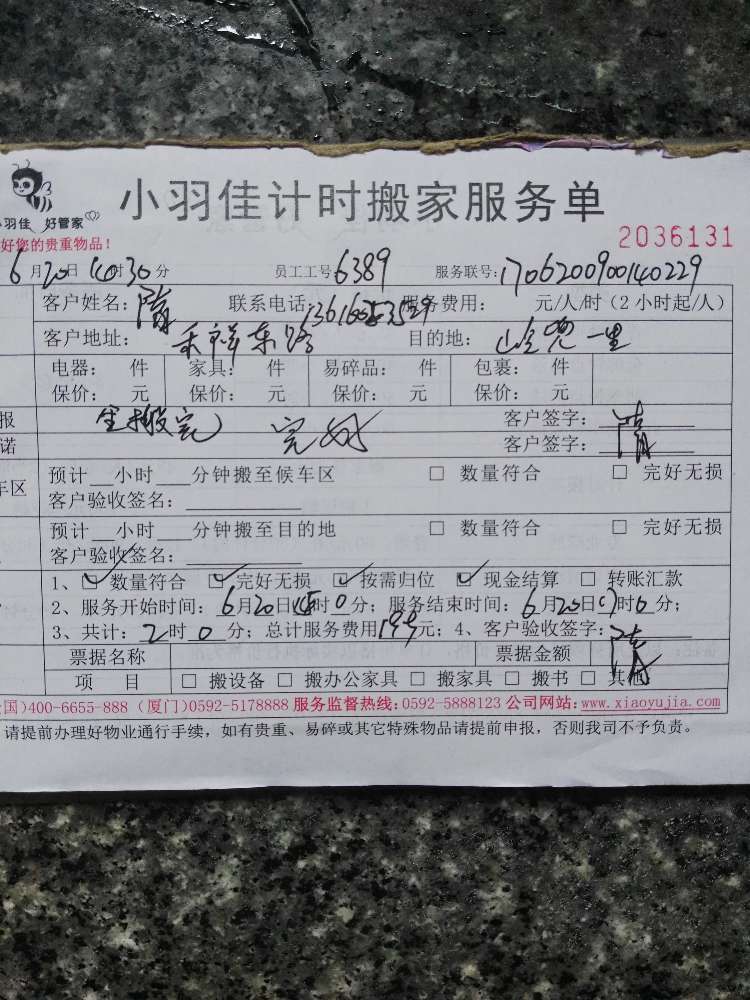 小羽佳计时搬家服务单
羽佳 好管家
好您的贵重物品!
2036131
6月20日14时30分 员工工号:6389 服务联号:1706200900140229
客户姓名: 联系电话: 服务费用: 元/人/时(2小时起/人)
客户地址:禾祥东路 目的地:岭兜一里
电器: 件 家具: 件 易碎品: 件 包裹: 件
保价: 元 保价: 元 保价: 元 保价: 元
报 搬完 完好 客户签字:
诺 客户签字:
车区 预计__小时___分钟搬至候车区 □ 数量符合 □ 完好无损
客户验收签名:
预计__小时___分钟搬至目的地 □ 数量符合 □ 完好无损
客户验收签名:
1、☑ 数量符合 ☑ 完好无损 ☑ 按需归位 ☑ 现金结算 □ 转账汇款
2、服务开始时间:6月20日15时0分;服务结束时间:6月20日17时0分;
3、共计:2时0分;总计服务费用元;4、客户验收签字:
票据名称 票据金额
项 目 □ 搬设备 □ 搬办公家具 □ 搬家具 □ 搬书 □ 其他
国)400-6655-888 (厦门)0592-5178888 服务监督热线:0592-5888123 公司网站:www.xiaoyujia.com
请提前办理好物业通行手续,如有贵重、易碎或其它特殊物品请提前申报,否则我司不予负责。